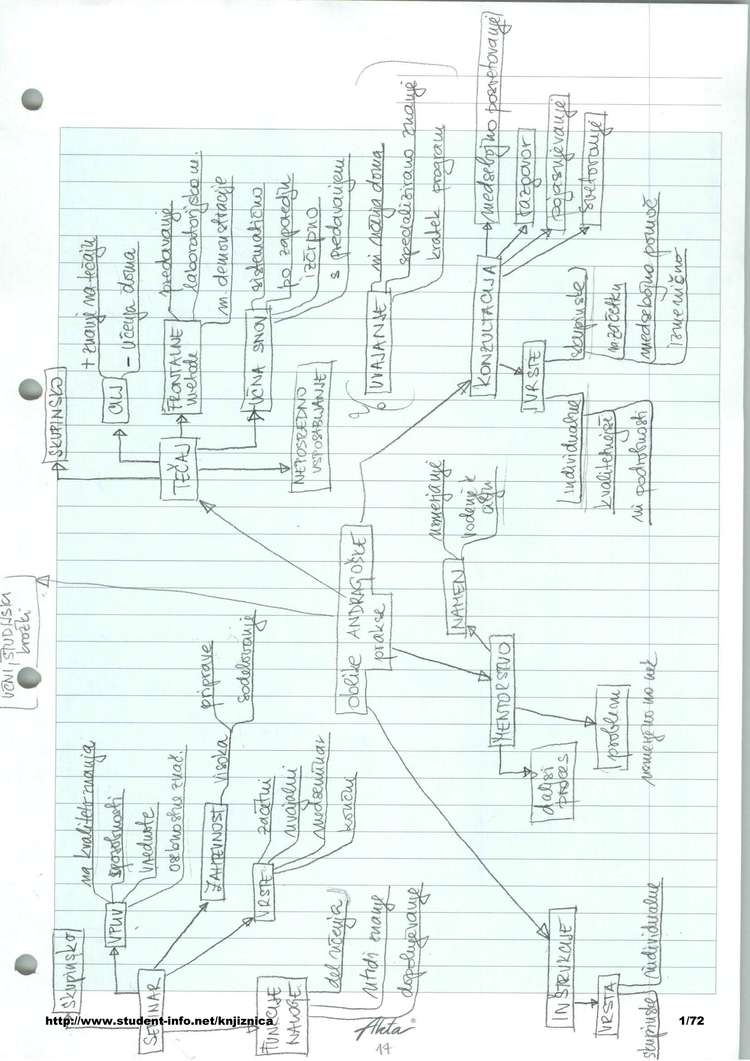 UČNI, ŠTUDIJSKI
krožki
oblike ANDRAGOŠKE
prakse
SKUPINSKO
SEMINAR
VPLIV
na kvaliteto znanja
sposobnosti
vrednote
osebnostne znač.
ZAHTEVNOST
visoka
priprave
sodelovanje
VRSTE
začetni
uvajalni
medseminar
končni
FUNKCIJE
NALOGE
del učenja
utrdi znanje
dopolnjevanje
SKUPINSKO
TEČAJ
CILJ
+ znanj na tečaju
- učenja doma
FRONTALNE
metode
predavanje
laboratorijskom.
in demonstracije
UČNA SNOV
sistematično
po zaporedju
izčrpno
s predavanjem
NEPOSREDNO
VZPOSTAVLJANJE
UVAJANJE
ni učenja doma
specializirano znanje
kratek program
KONZULTACIJA
medsebojno posvetovanje
razgovor
pojasnjevanje
svetovanje
VRSTE
skupinske
medsebojna pomoč
izmenično
individualne
kvalitetnejše
MENTORSTVO
NAMEN
usmerjanje
vodenje k
cilju
problem
daljši
proces
INŠTRUKCIJE
VRSTA
skupinske
individualne
http://www.student-info.net/knjiznica
Aleta
14
1/72